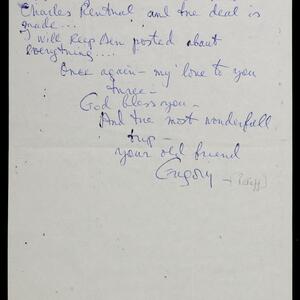 Charles Rewthal and the deal is
made...
I will keep Ben posted about
everything....
Once again - my love to you
three -
God bless you -
And the most wonderfull
trip -
your old friend
Gregory